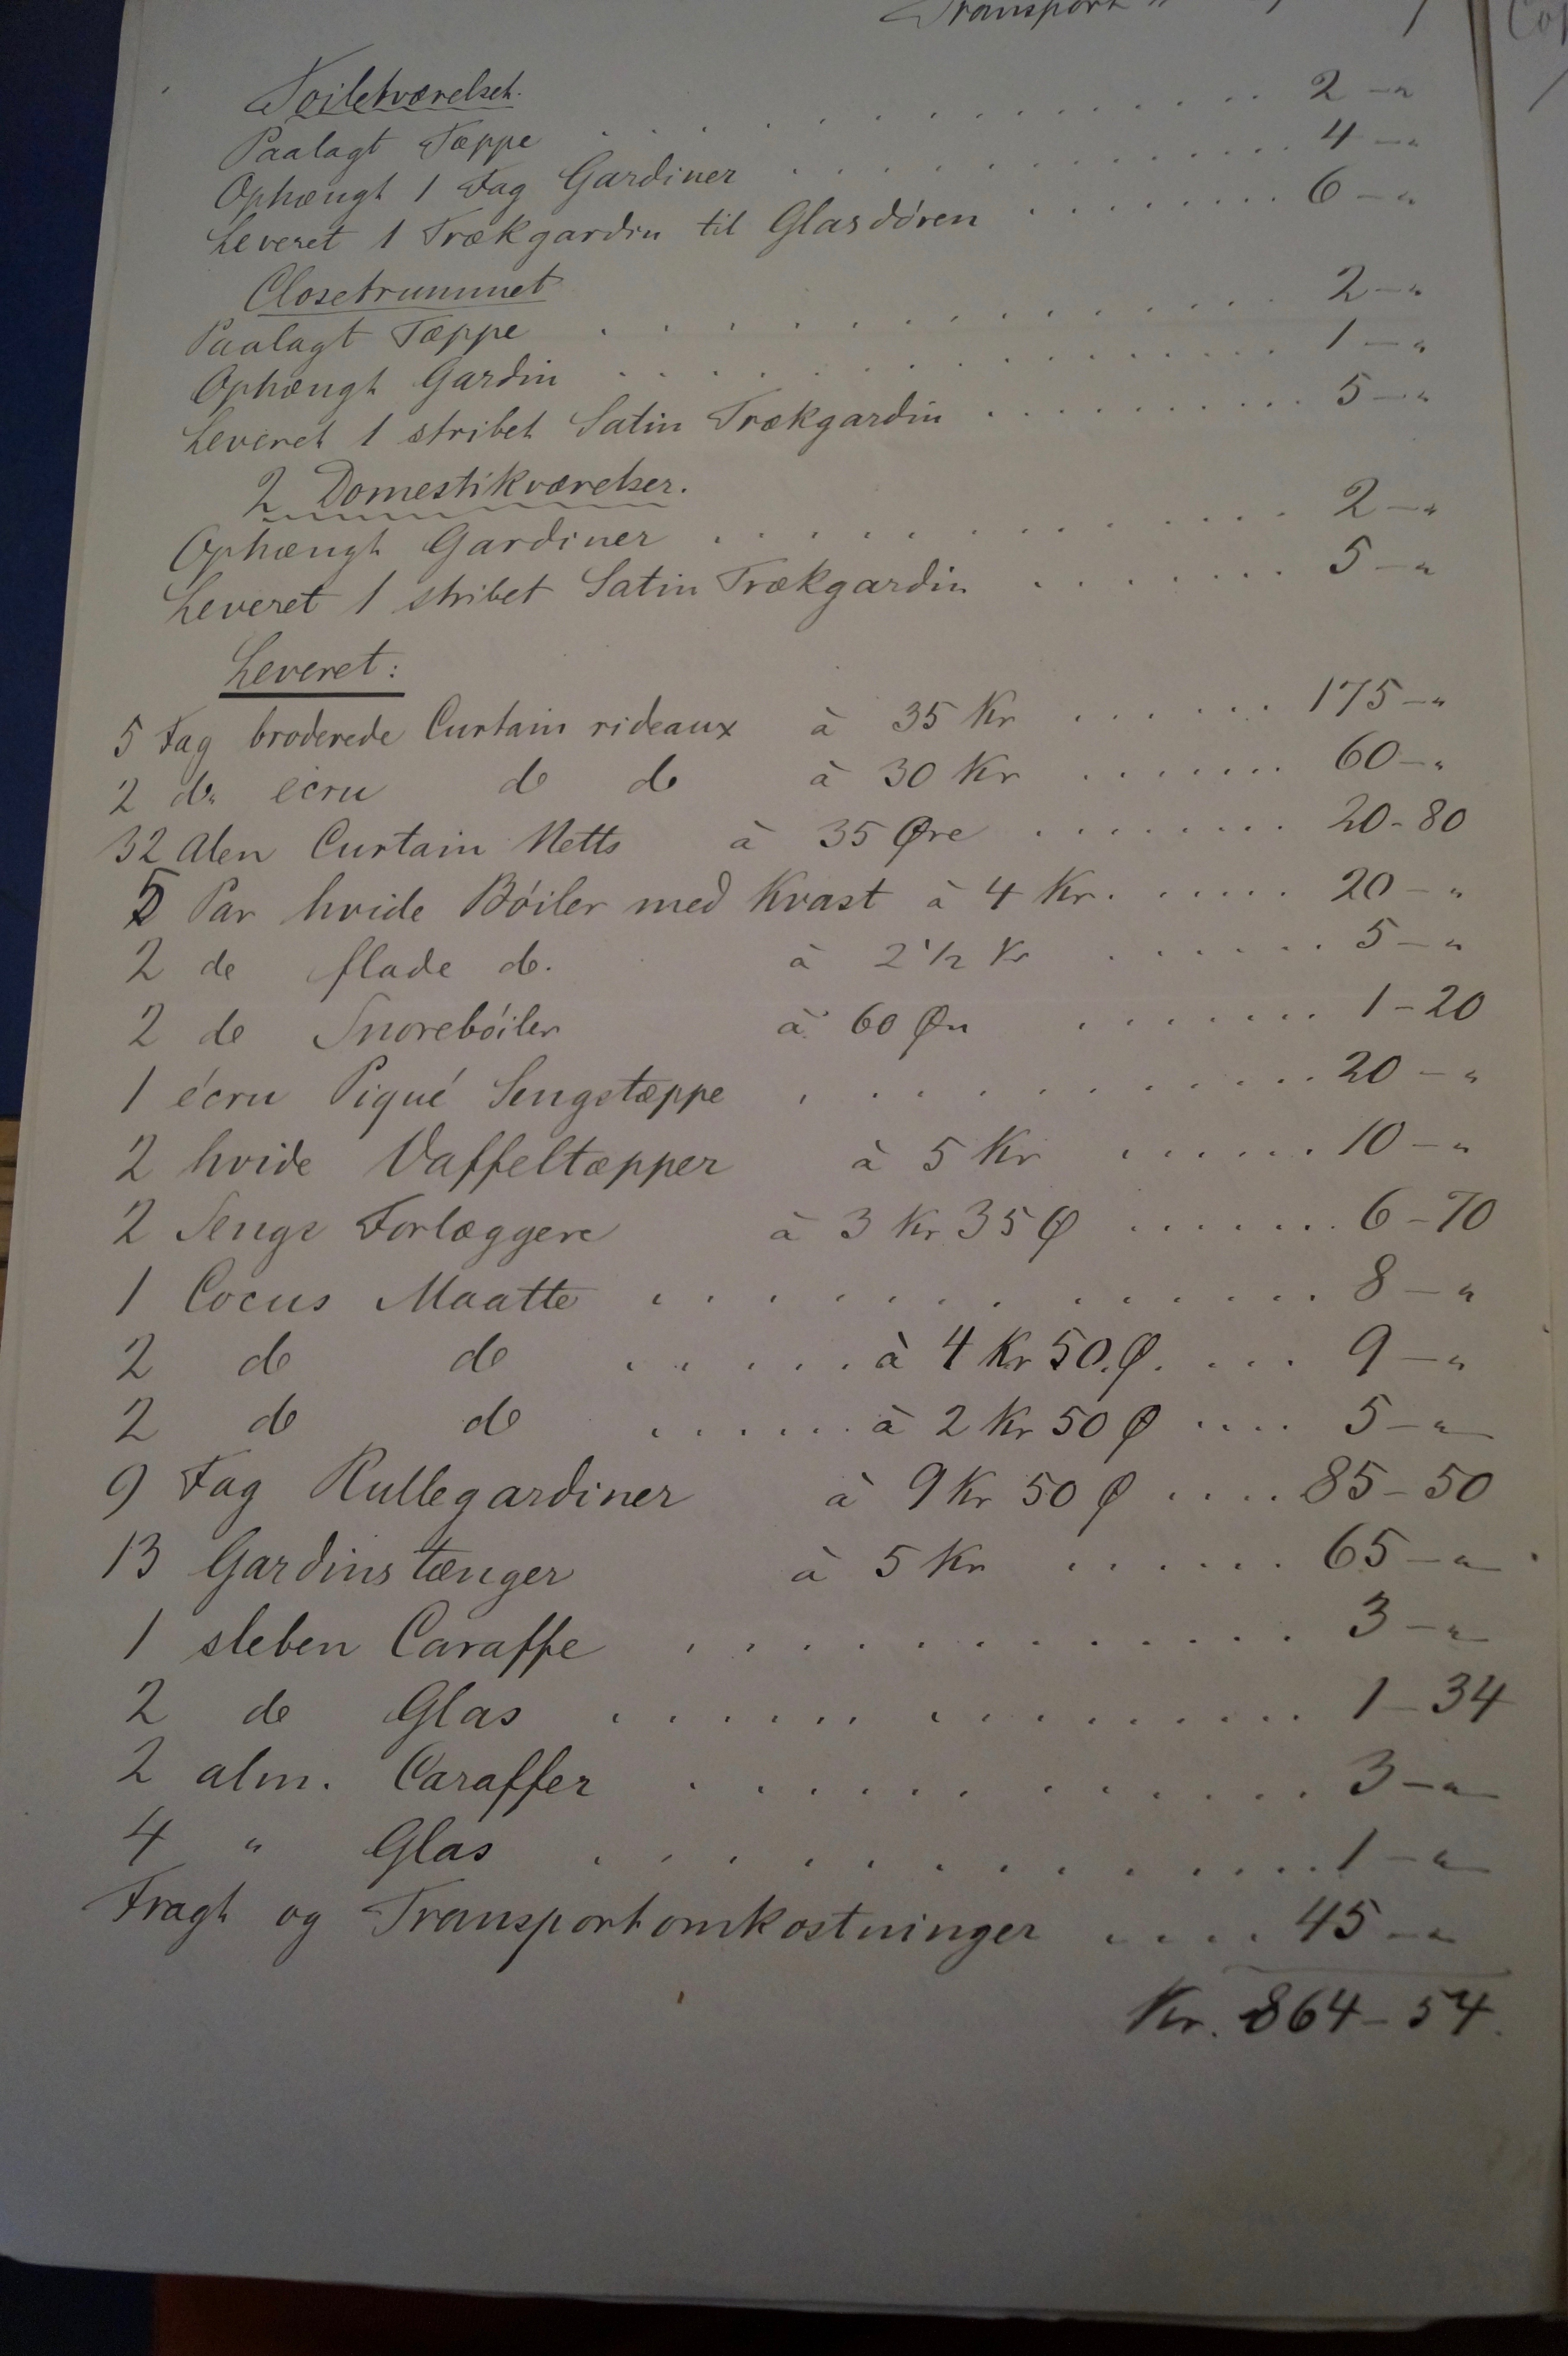 Transport "
Toiletværelset.
Paalagt Tæppe . . . . . . . . . . . . 2 - "
Ophængt 1 Fag Gardiner . . . . . . . . . . 4 - "
Leveret 1 Trækgardin til Glasdøren . . . . . . . . 6 - "
Closetrummet
Paalagt Tæppe . . . . . . . . . . . . 2 - "
Ophængt Gardin . . . . . . . . . . . . 1 - "
Leveret 1 stribet Satin Trækgardin . . . . . . . . . . 5 - "
2 Domestikværelser.
Ophængt Gardiner . . . . . . . . . . . 2 - "
Leveret 1 stribet Satin Trækgardin . . . . . . . 5 - "
Leveret:
5 Fag broderede Curtain rideaux à 35 Kr . . . . . . 175 - "
2 do. écru do do à 30 Kr . . . . . . . 60 - "
32 Alen Curtain Netts à 35 Øre . . . . . . . . 20 - 80
5 Par hvide Bøiler med Kvast à 4 Kr. . . . . . 20 - "
2 do flade do. à 2 1/2 Kr . . . . . . 5 - "
2 do Snorebøiler à 60 Øre . . . . . . . 1 - 20
1 écru Piqué Sengetæppe . . . . . . . . . . . 20 - "
2 hvide Vaffeltæpper à 5 Kr . . . . . . 10 - "
2 Senge Forlæggere à 3 Kr 35 Ø . . . . . . . 6 - 70
1 Cocus Maatte . . . . . . . . . . . . . 8 - "
2 do do . . . . . à 4 Kr 50. Ø. . . . 9 - "
2 do do . . . . . . à 2 Kr 50 Ø . . . . 5 - "
9 Fag Rullegardiner à 9 Kr 50 Ø . . . . 85 - 50
13 Gardinstænger à 5 Kr . . . . . . 65 - "
1 sleben Caraffe . . . . . . . . . . . 3 - "
2 do Glas . . . . . . . . . . . . . 1 - 34
2 alm. Caraffer . . . . . . . . . . . 3 - "
4 " Glas . . . . . . . . . . . . . 1 - "
Fragt og Transportomkostninger . . . . 45 - "
Kr. 864 - 54.